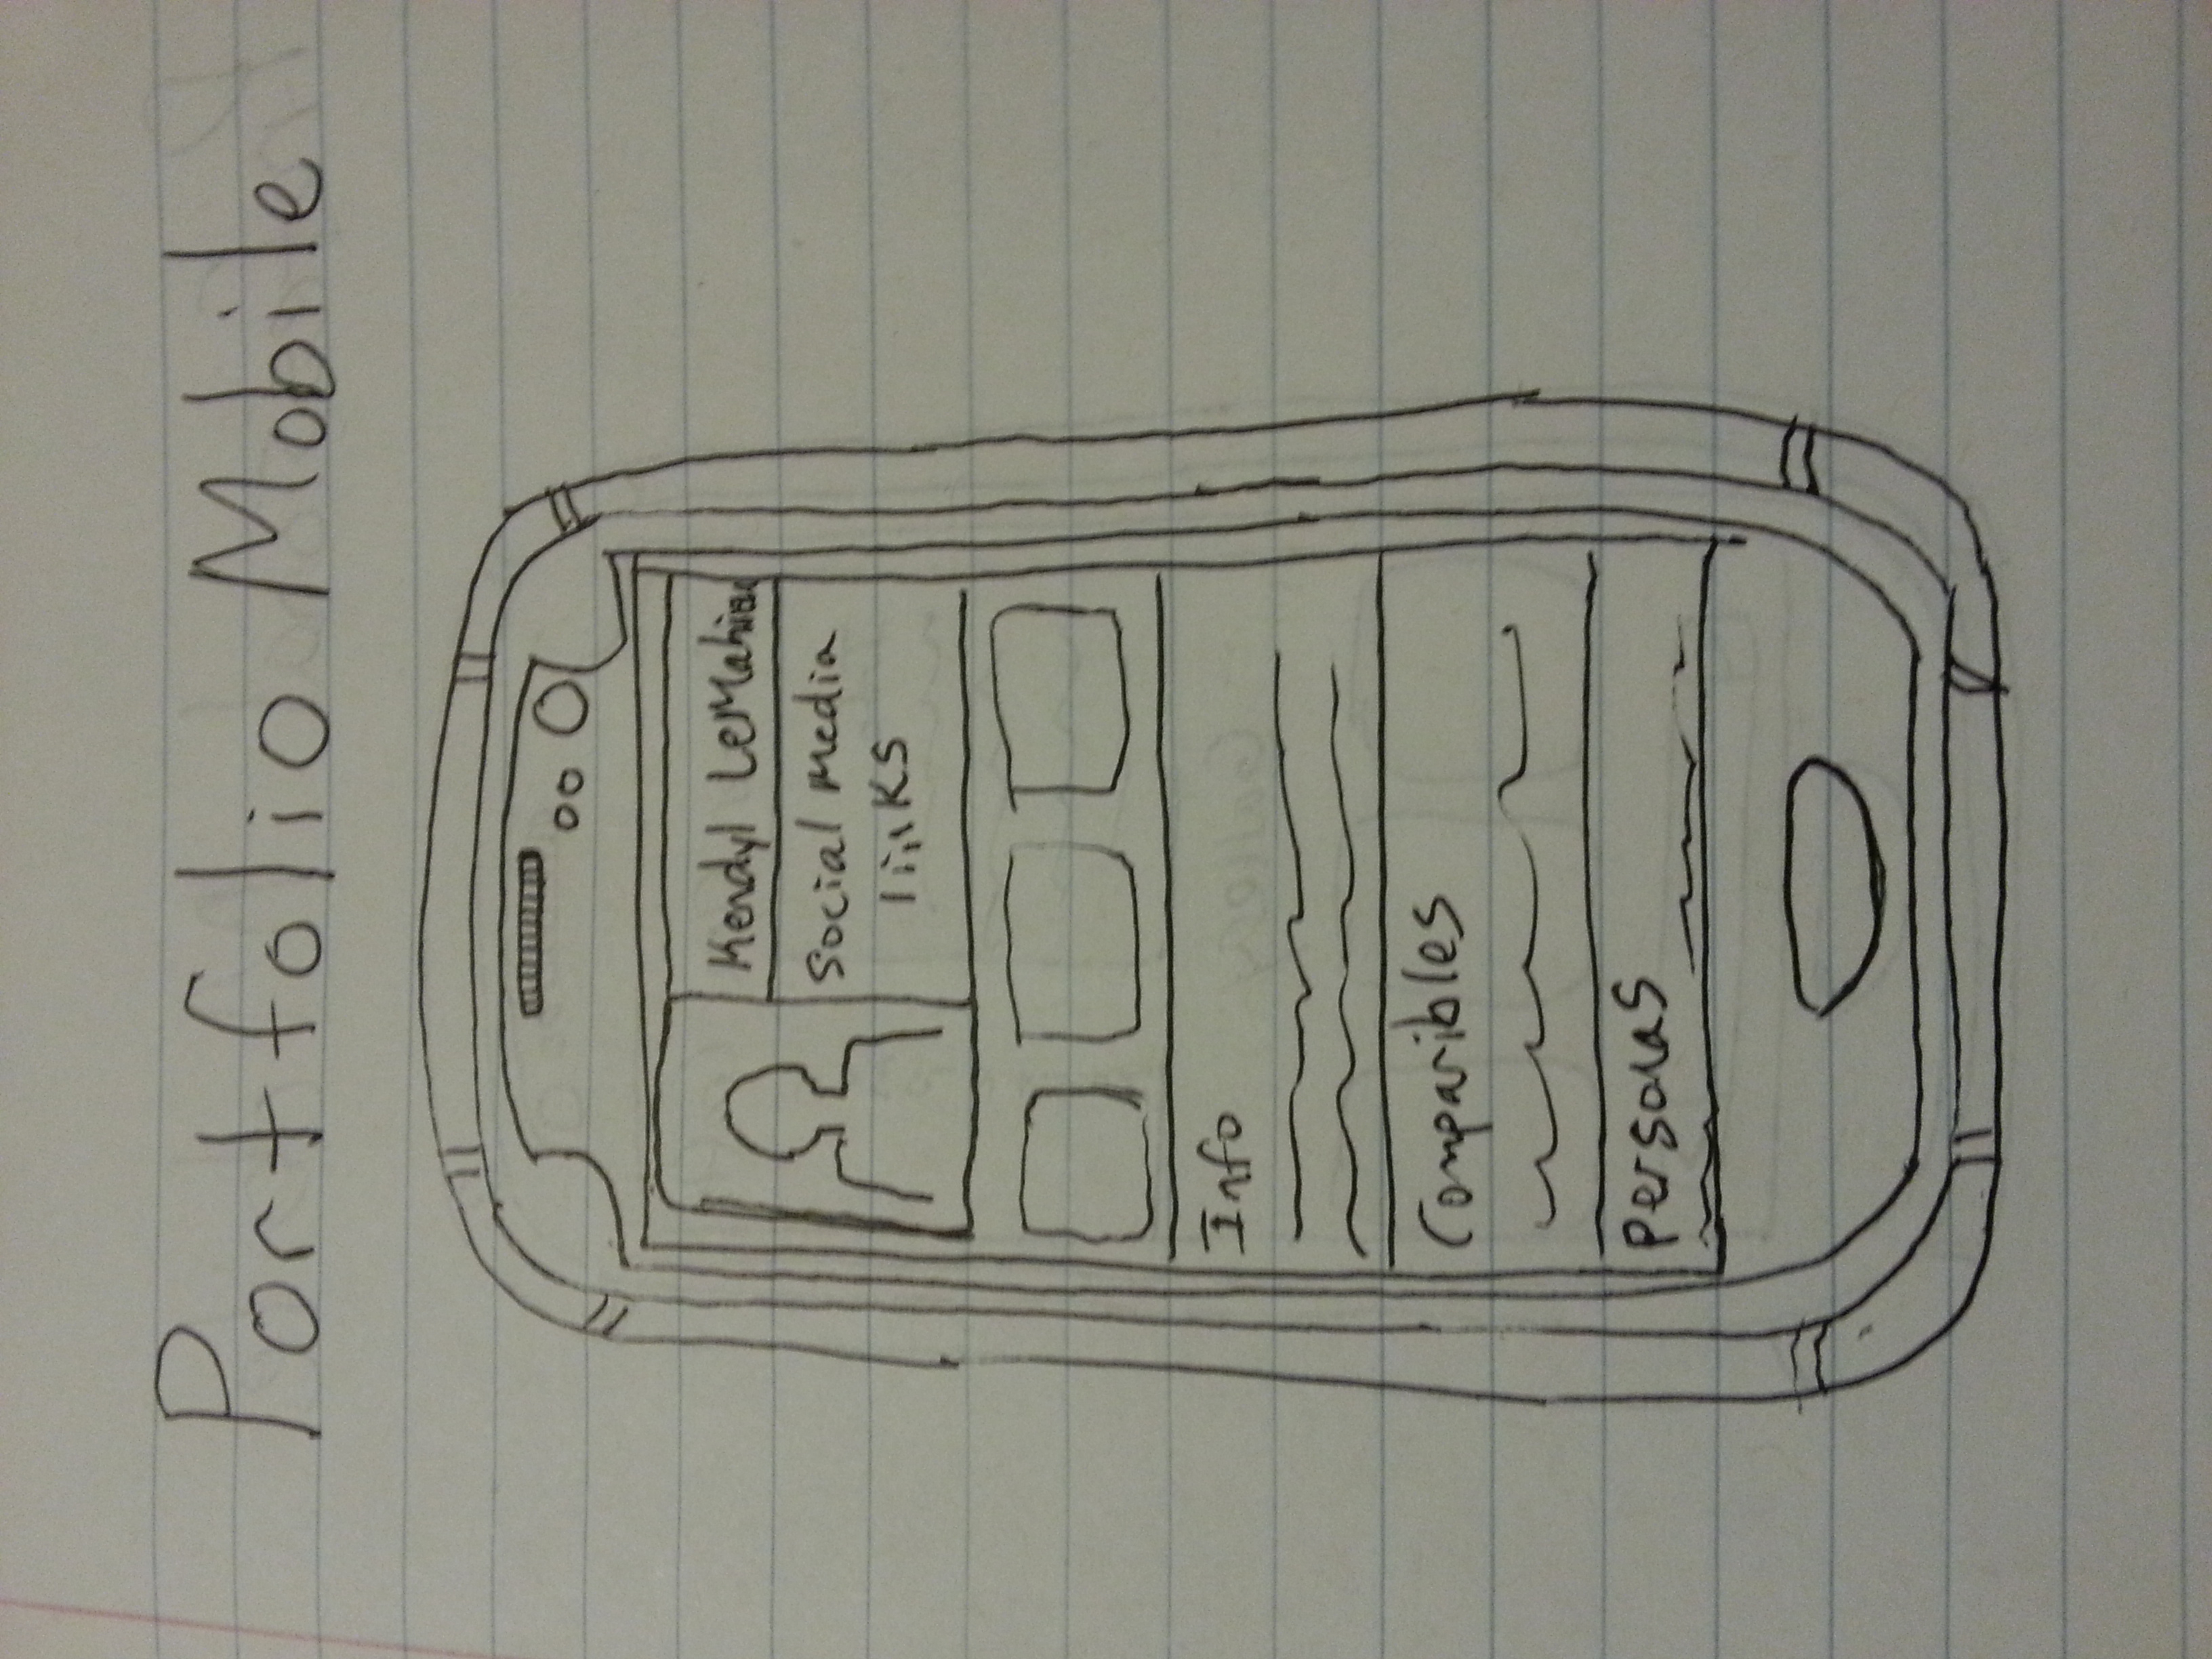 Portfolio Mobile
Kendyl LeMahieu
Social Media
links
Info
Comparibles
Personas